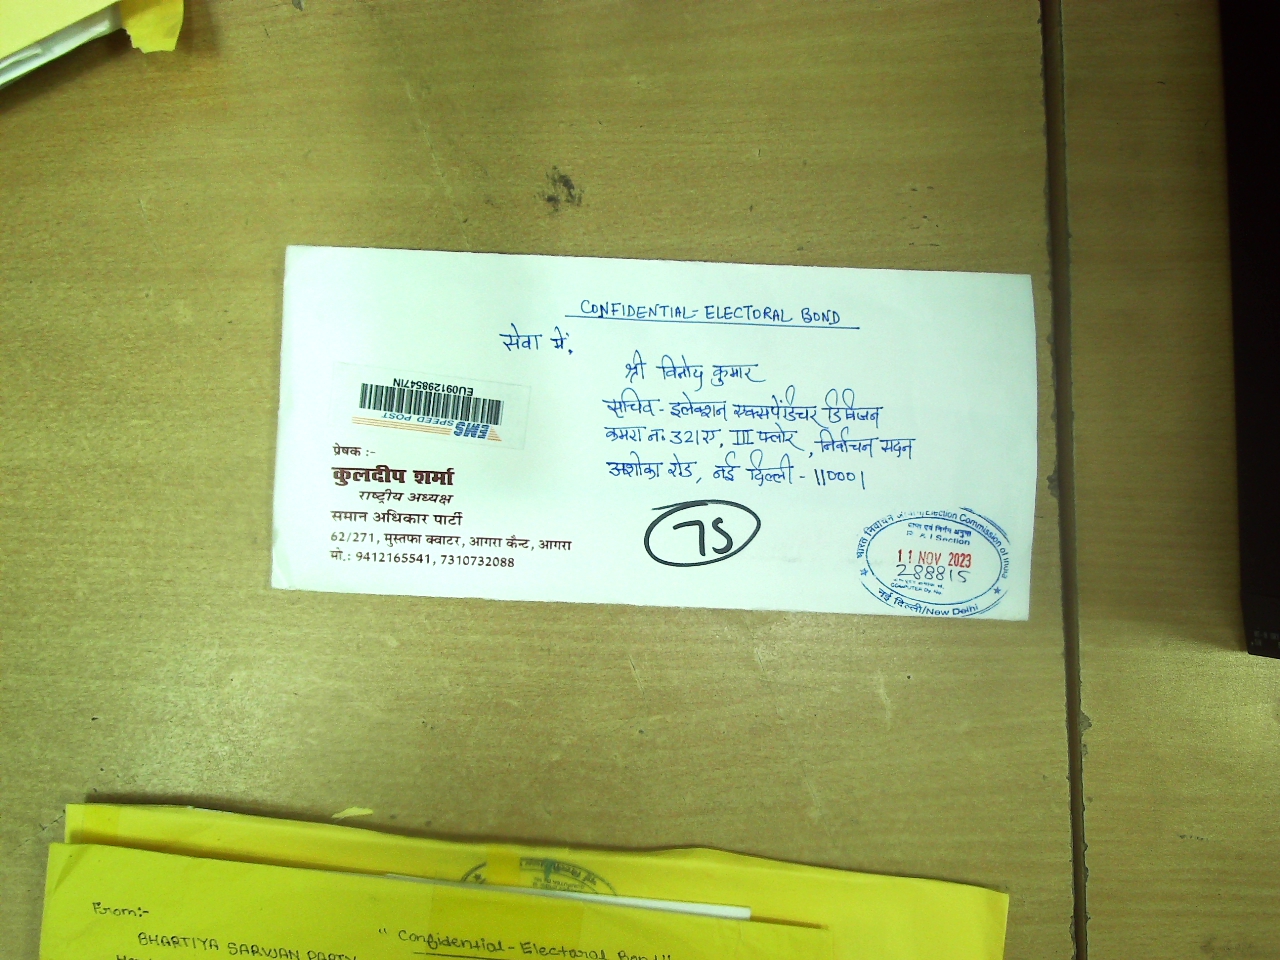 CONFIDENTIAL-ELECTORAL BOND
सेवा में,
श्री विनोद कुमार
सचिव - इलेक्शन एक्सपेंडिचर डिविजन
कमरा नं. 321ए, III फ्लोर, निर्वाचन सदन
अशोका रोड, नई दिल्ली - 110001
EU091298547IN
EMS SPEED POST
प्रेषक :-
कुलदीप शर्मा
राष्ट्रीय अध्यक्ष
समान अधिकार पार्टी
62/271, मुस्तफा क्वाटर, आगरा कैन्ट, आगरा
मो.: 9412165541, 7310732088
75
भारत निर्वाचन Election Commission of India
R & I Section
11 NOV 2023
288815
COMPUTER Dy No.
नई दिल्ली/New Delhi
From:-
BHARTIYA SARWAN PARTY
"Confidential-Electoral Bond"